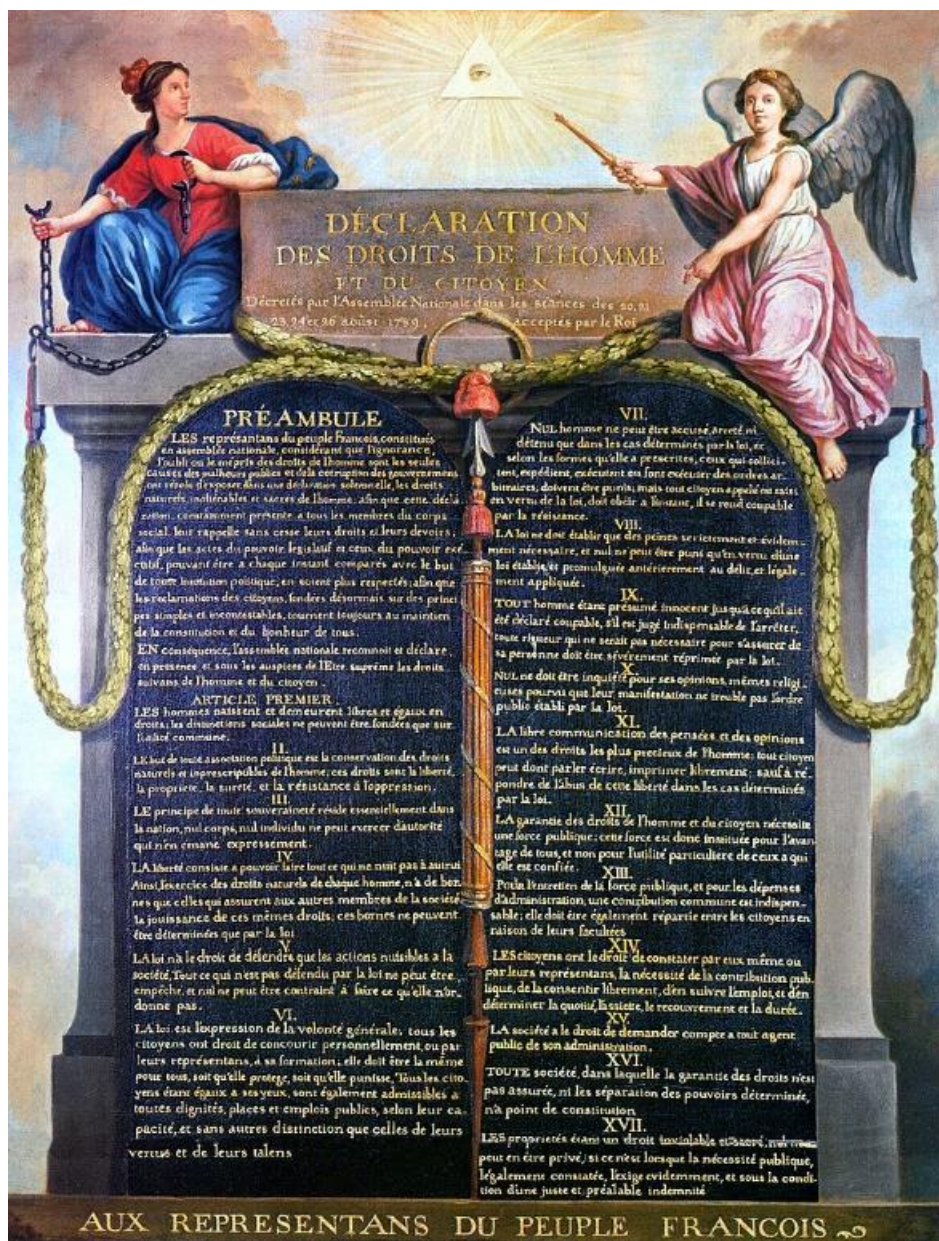 DÉCLARATION
DES DROITS DE L'HOMME
ET DU CITOYEN,
Décretés par l'Assemblée Nationale dans les séances des 20, 21
23, 24 et 26 août 1789, acceptés par le Roi
PRÉAMBULE
LES représentans du peuple François, constitués
en assemblée nationale, considérant que l'ignorance,
l'oubli ou le mépris des droits de l'homme sont les seules
causes des malheurs publics et de la corruption des gouvernemens
ont résolu d'exposer dans une déclaration solemnelle, les droits
naturels, inaliénables et sacrés de l'homme; afin que cette décla
ration, constamment présente a tous les membres du corps
social, leur rappelle sans cesse leurs droits et leurs devoirs;
afin que les actes du pouvoir legislatif et ceux du pouvoir exé
cutif, pouvant être a chaque instant comparés avec le but
de toute institution politique, en soient plus respectés; afin que
les reclamations des citoyens, fondées désormais sur des princi
pes simples et incontestables, tournent toujours au maintien
de la constitution et du bonheur de tous.
EN conséquence, l'assemblée nationale reconnoit et déclare
en presence et sous les auspices de l'Etre suprême les droits
suivans de l'homme et du citoyen.
ARTICLE PREMIER.
LES hommes naissent et demeurent libres et égaux en
droits; les distinctions sociales ne peuvent être fondées que sur
l'utilité commune.
II.
LE but de toute association politique est la conservation des droits
naturels et inprescriptibles de l'homme; ces droits sont la liberté,
la propriete, la sureté, et la résistance à l'oppression.
III.
LE principe de toute souveraineté réside essentiellement dans
la nation, nul corps, nul individu ne peut exercer d'autorité
qui n'en emane expressement.
IV.
LA liberté consiste a pouvoir faire tout ce qui ne nuit pas à autrui
Ainsi, l'exercice des droits naturels de chaque homme, n'a de bor
nes que celles qui assurent aux autres membres de la société
la jouissance de ces mêmes droits; ces bornes ne peuvent
être déterminées que par la loi
V.
LA loi n'a le droit de défendre que les actions nuisibles a la
société. Tout ce qui n'est pas défendu par la loi ne peut être
empêché, et nul ne peut être contraint à faire ce qu'elle n'or-
donne pas.
VI.
LA loi est l'expression de la volonté générale; tous les
citoyens ont droit de concourir personnellement, ou par
leurs représentans, à sa formation; elle doit être la même
pour tous, soit qu'elle protege, soit qu'elle punisse. Tous les cito-
yens étant égaux a ses yeux, sont également admissibles a
toutes dignités, places et emplois publics, selon leur ca-
pacité, et sans autres distinction que celles de leurs
vertus et de leurs talens
VII.
NUL homme ne peut être accusé, arreté ni
détenu que dans les cas déterminés par la loi, et
selon les formes qu'elle a prescrites, ceux qui sollici-
tent, expédient, exécutent ou font exécuter des ordres ar-
bitraires, doivent être punis; mais tout citoyen appelé ou saisi
en vertu de la loi, doit obéir a l'instant, il se rend coupable
par la résistance.
VIII.
LA loi ne doit établir que des peines strictement et évidem-
ment nécessaire, et nul ne peut être puni qu'en vertu d'une
loi établie et promulguée antérierement au délit, et légale-
ment appliquée.
IX.
TOUT homme étant présumé innocent jusqu'a ce qu'il ait
été déclaré coupable, s'il est jugé indispensable de l'arrêter,
toute rigueur qui ne serait pas nécessaire pour s'assurer de
sa personne doit être sévèrement réprimé par la loi.
X.
NUL ne doit être inquiété pour ses opinions, mêmes religi-
euses pourvu que leur manifestation ne trouble pas l'ordre
public établi par la loi.
XI.
LA libre communication des pensées et des opinions
est un des droits les plus precieux de l'homme; tout citoyen
peut dont parler écrire, imprimer librement; sauf à ré-
pondre de l'abus de cette liberté dans les cas déterminés
par la loi.
XII.
LA garantie des droits de l'homme et du citoyen nécessite
une force publique; cette force est donc instituée pour l'avan-
tage de tous, et non pour l'utilité particuliere de ceux a qui
elle est confiée.
XIII.
POUR l'entretien de la force publique, et pour les dépenses
d'administration, une contribution commune est indispen-
sable; elle doit être également répartie entre les citoyens en
raison de leurs facultées
XIV.
LES citoyens ont le droit de constater par eux même ou
par leurs représentans, la nécessité de la contribution pub-
lique, de la consentir librement, d'en suivre l'emploi, et d'en
déterminer la quotité, l'assiette, le recouvrement et la durée.
XV.
LA société a le droit de demander compte a tout agent
public de son administration.
XVI.
TOUTE société, dans laquelle la garantie des droits n'est
pas assurée, ni les séparation des pouvoirs déterminée,
n'a point de constitution
XVII.
LES proprietés étant un droit inviolable et sacré, nul ne
peut en être privé, si ce n'est lorsque la nécessité publique,
légalement constatée, l'exige evidemment, et sous la condi-
tion d'une juste et préalable indemnité
AUX REPRESENTANS DU PEUPLE FRANCOIS